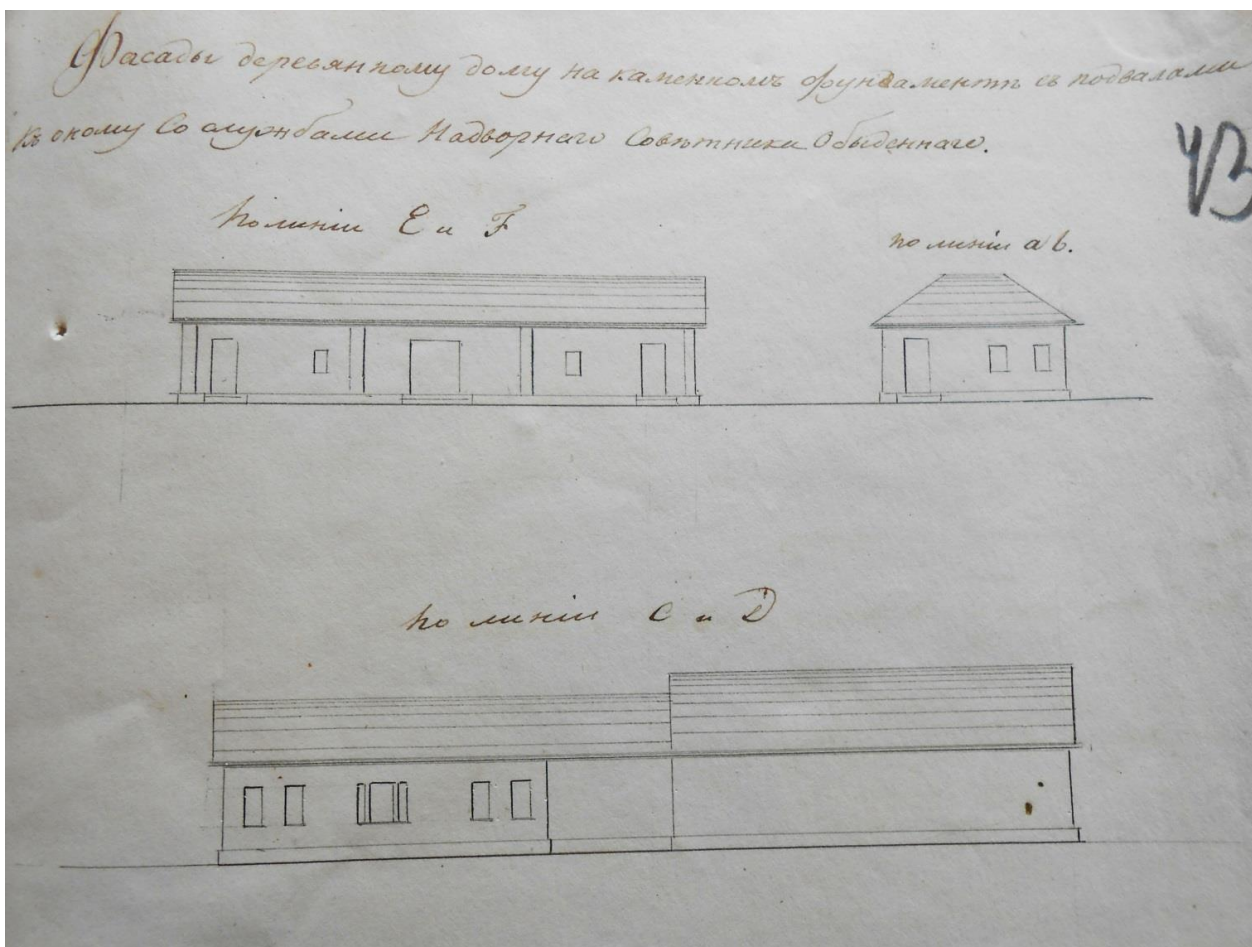 Фасады деревянному дому на каменномъ фундаментѣ съ подвалами
къ оному Со службами Надворнаго Совѣтника Обыденнаго.
По линіи E и F
по линіи a b.
по линіи C и D